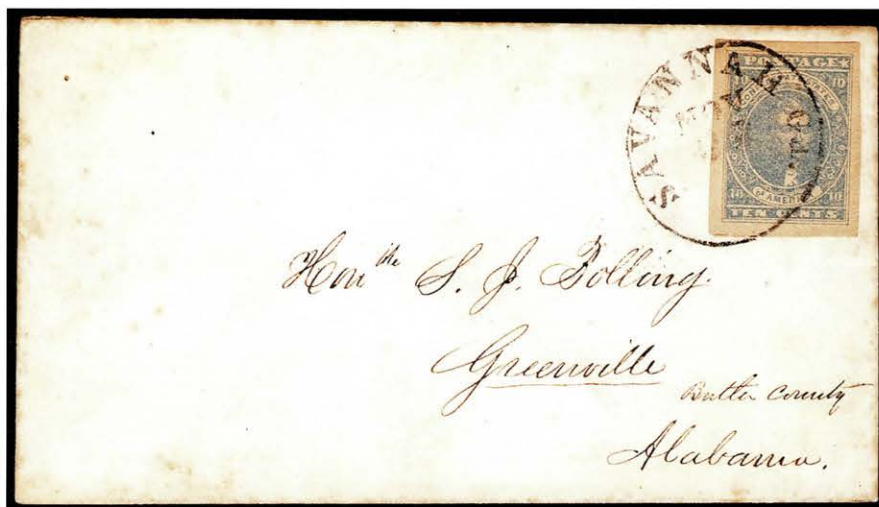 SAVANNAH Ga.
POSTAGE
10 10
10 OF AMERICA 10
TEN CENTS
Hon ble S. J. Bolling.
Greenville
Butler County
Alabama.